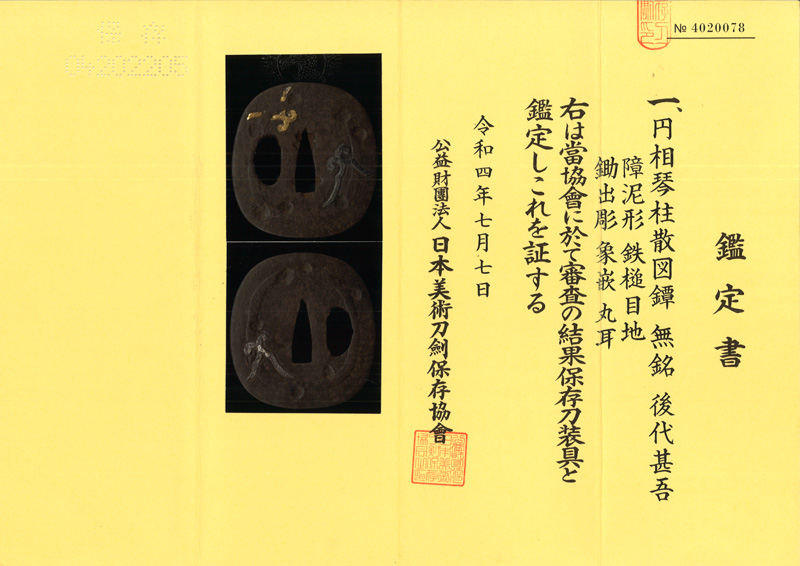 № 4020078
鑑定書
一、円相琴柱散図鐔 無銘 後代甚吾
障泥形 鉄槌目地
鋤出彫 象嵌 丸耳
右は當協會に於て審査の結果保存刀装具と
鑑定しこれを証する
令和四年七月七日
公益財團法人 日本美術刀劍保存協會
04202205